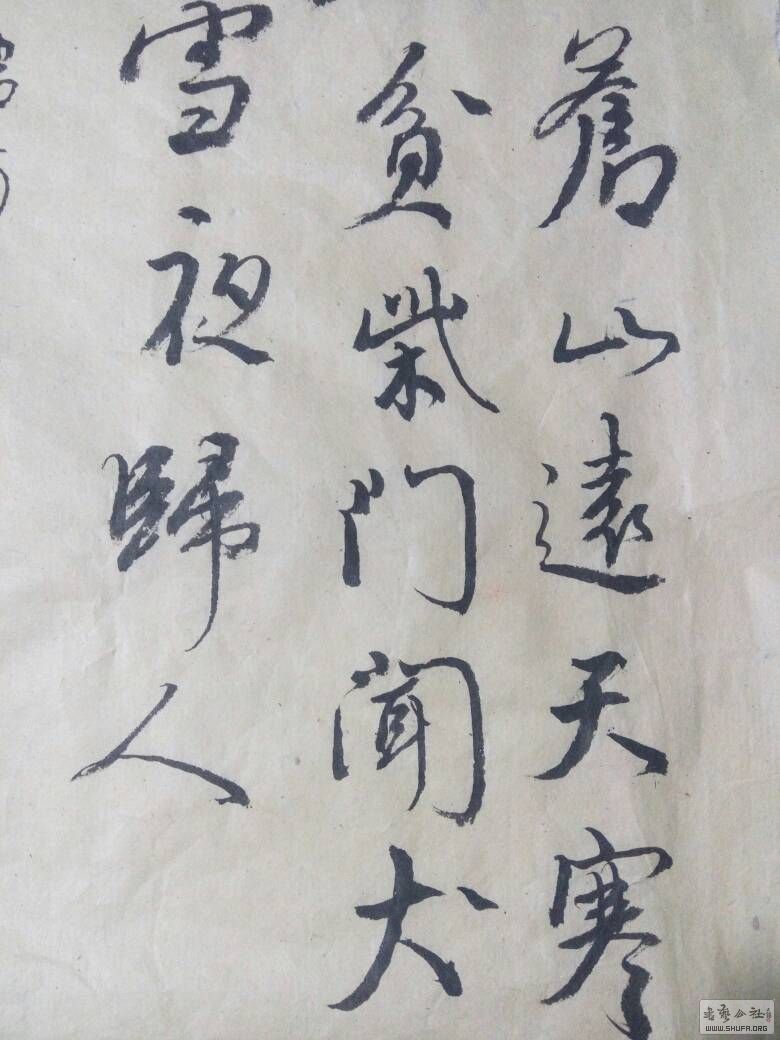 蒼山遠天寒
貧柴門聞犬
雪夜歸人
書藝公社
WWW.SHUFA.ORG